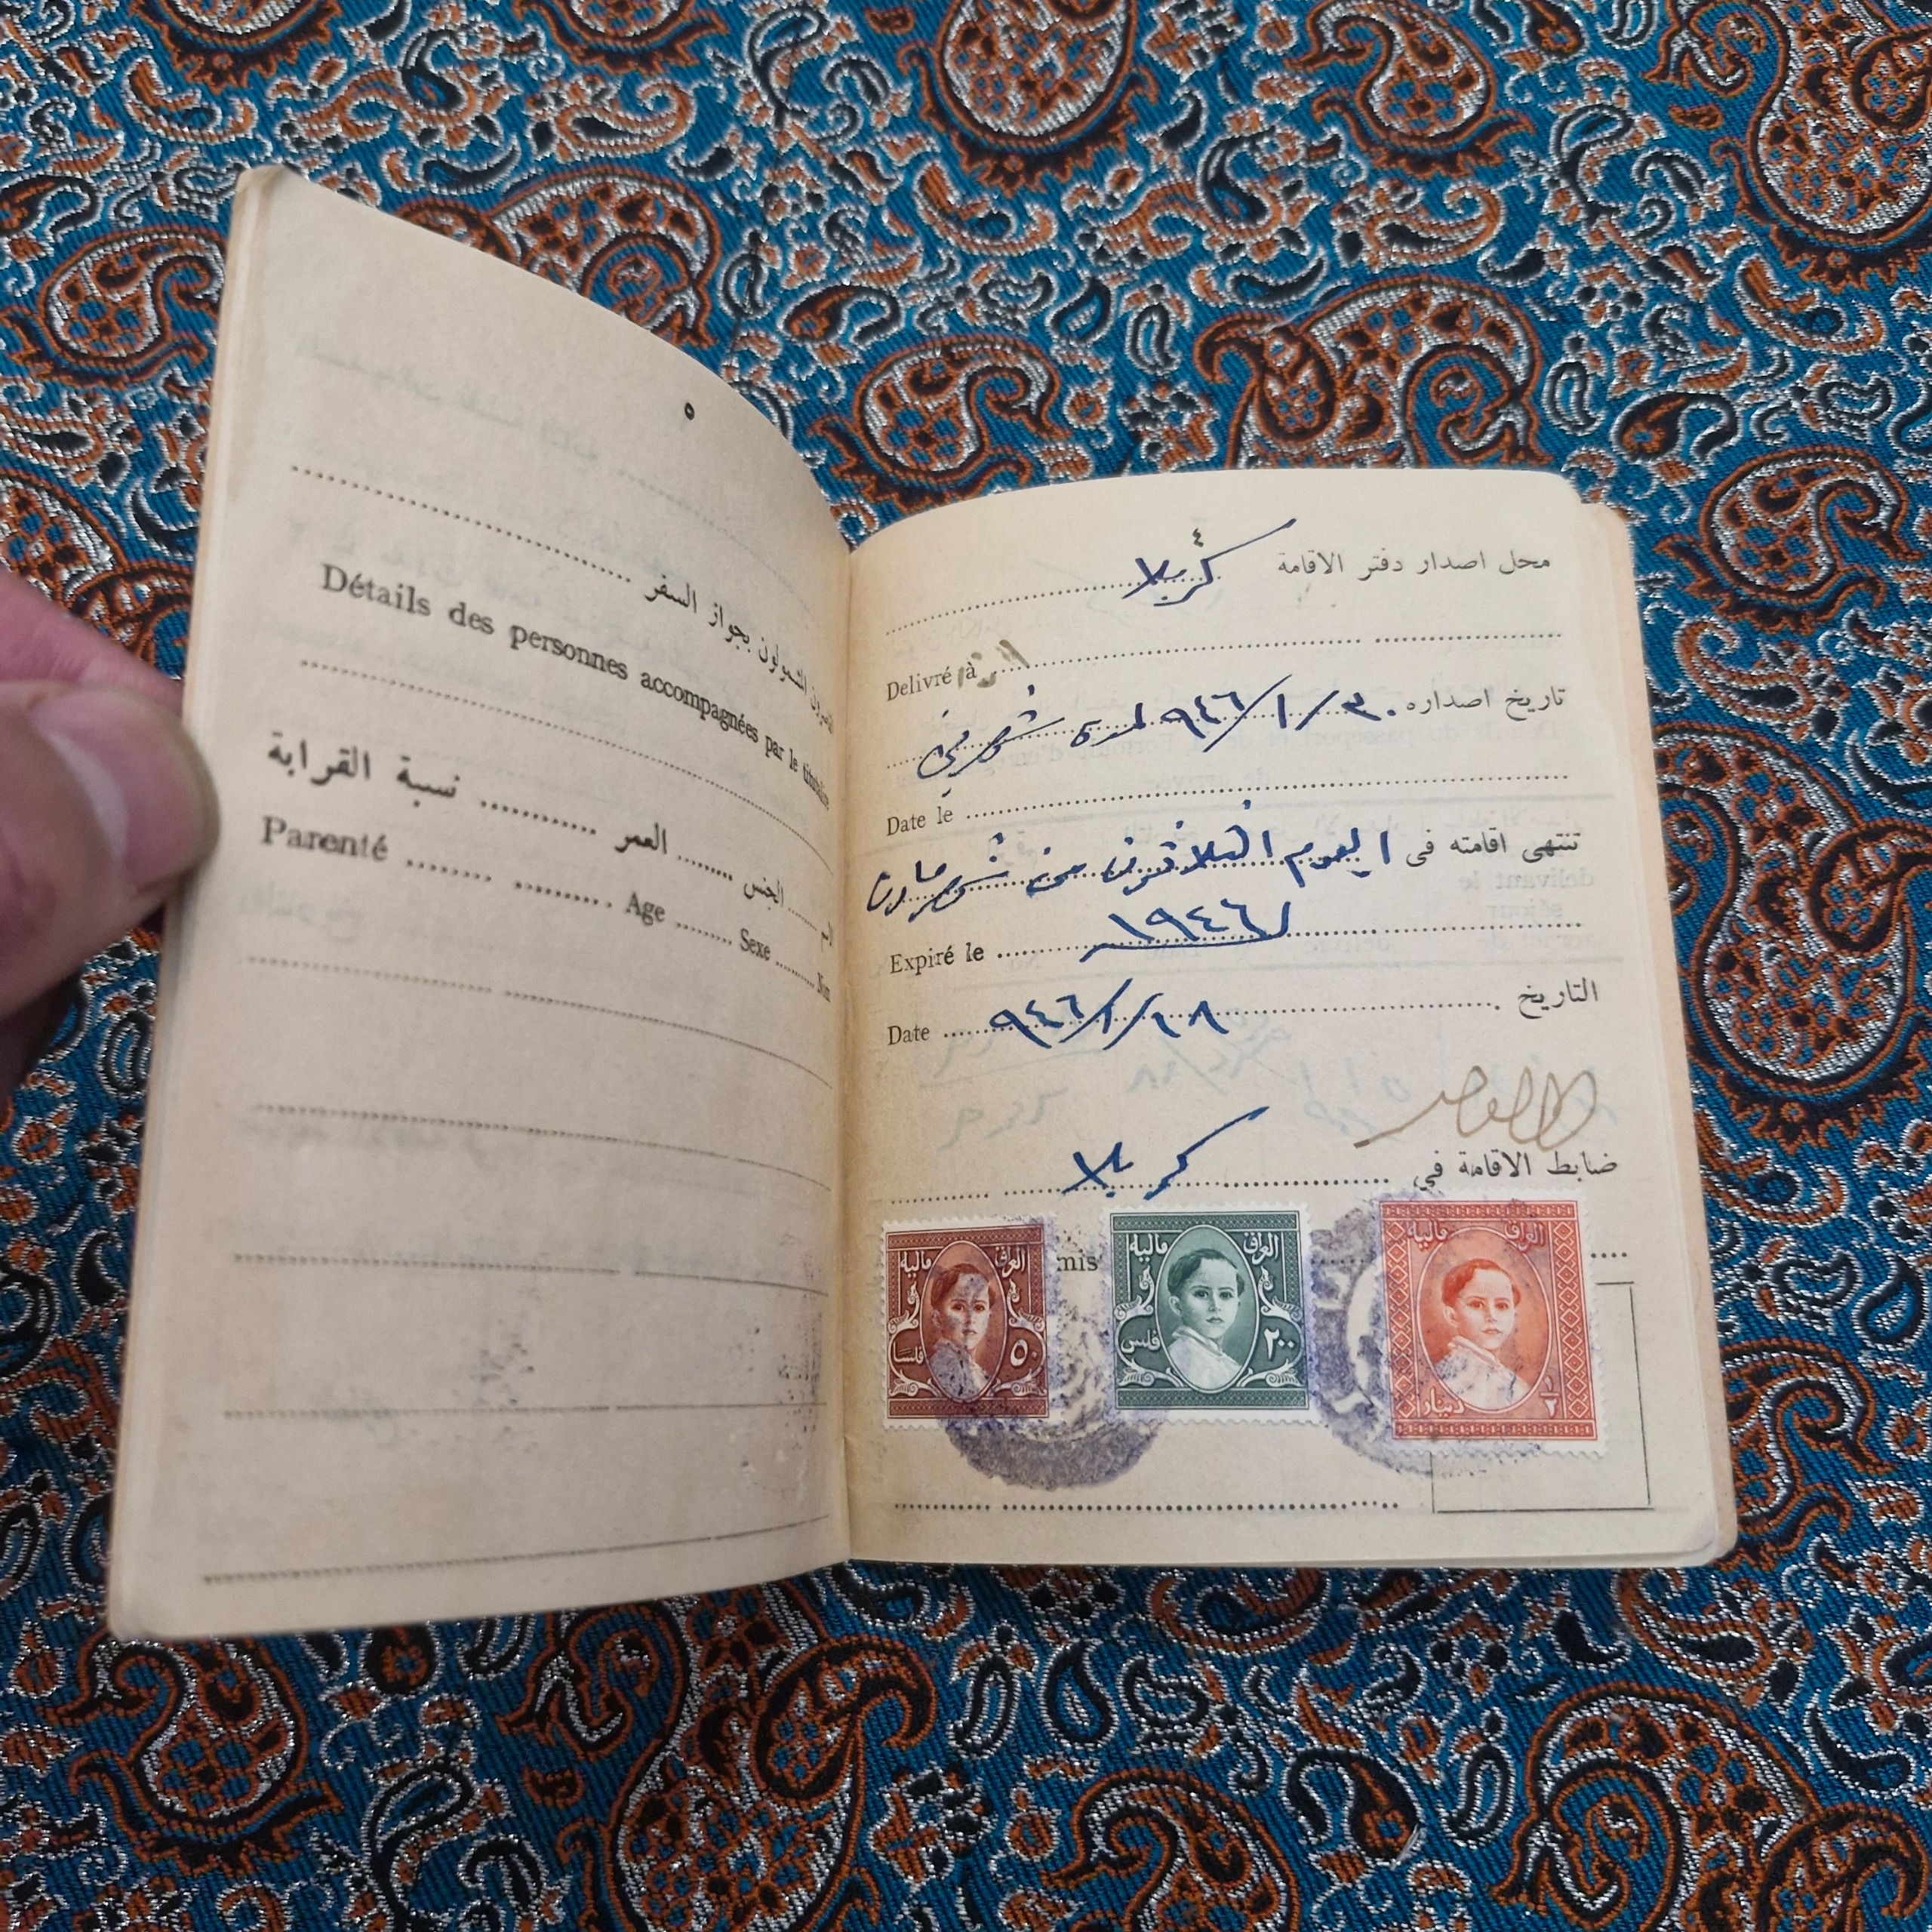 ٤
محل اصدار دفتر الاقامة كربلا
Delivré à
تاريخ اصداره ٣٠/١/٩٤٦ لمدة شهرين
Date le
تنتهى اقامته فى اليوم الثلاثون من شهر مارت
١٩٤٦
Expiré le
التاريخ
Date ٢٨/١/٩٤٦
ضابط الاقامة في كربلا
mis
العراق مالية
٥٠ فلسا
العراق مالية
٢٠٠ فلس
العراق مالية
١/٢ دينار
٥
المشمولون بجواز السفر
Détails des personnes accompagnées par le titulaire
الجنس العمر نسبة القرابة
Nom Sexe Age Parenté